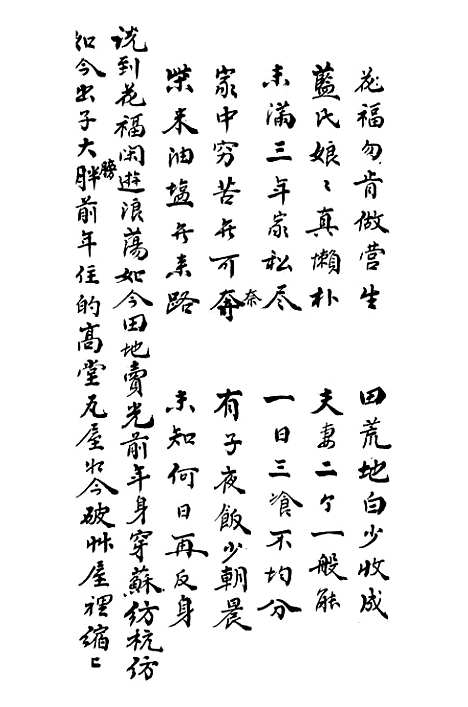 花福勿肯做营生 田荒地白少收成
蓝氏娘〻真懒朴 夫妻二个一般能
未满三年家私尽 一日三飡不均分
家中穷苦无可奈 有子夜飯少朝晨
柴米油塩无来路 未知何日再反身
说到花福闲遊浪蕩如今田地賣光前年身穿蘇纺杭纺
如今出子大膀胖前年住的髙堂瓦屋如今破艸屋裡缩〻